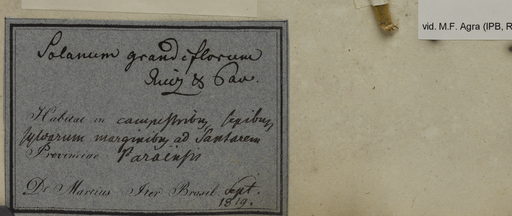 vid. M.F. Agra (IPB, R
Solanum grandiflorum
Ruiz & Pav.
Habitat in campestribus, sepibus,
sylvarum marginibus ad Santarem
Provinciae Paraensis
Dr Martius Iter Brasil. Sept.
1819.